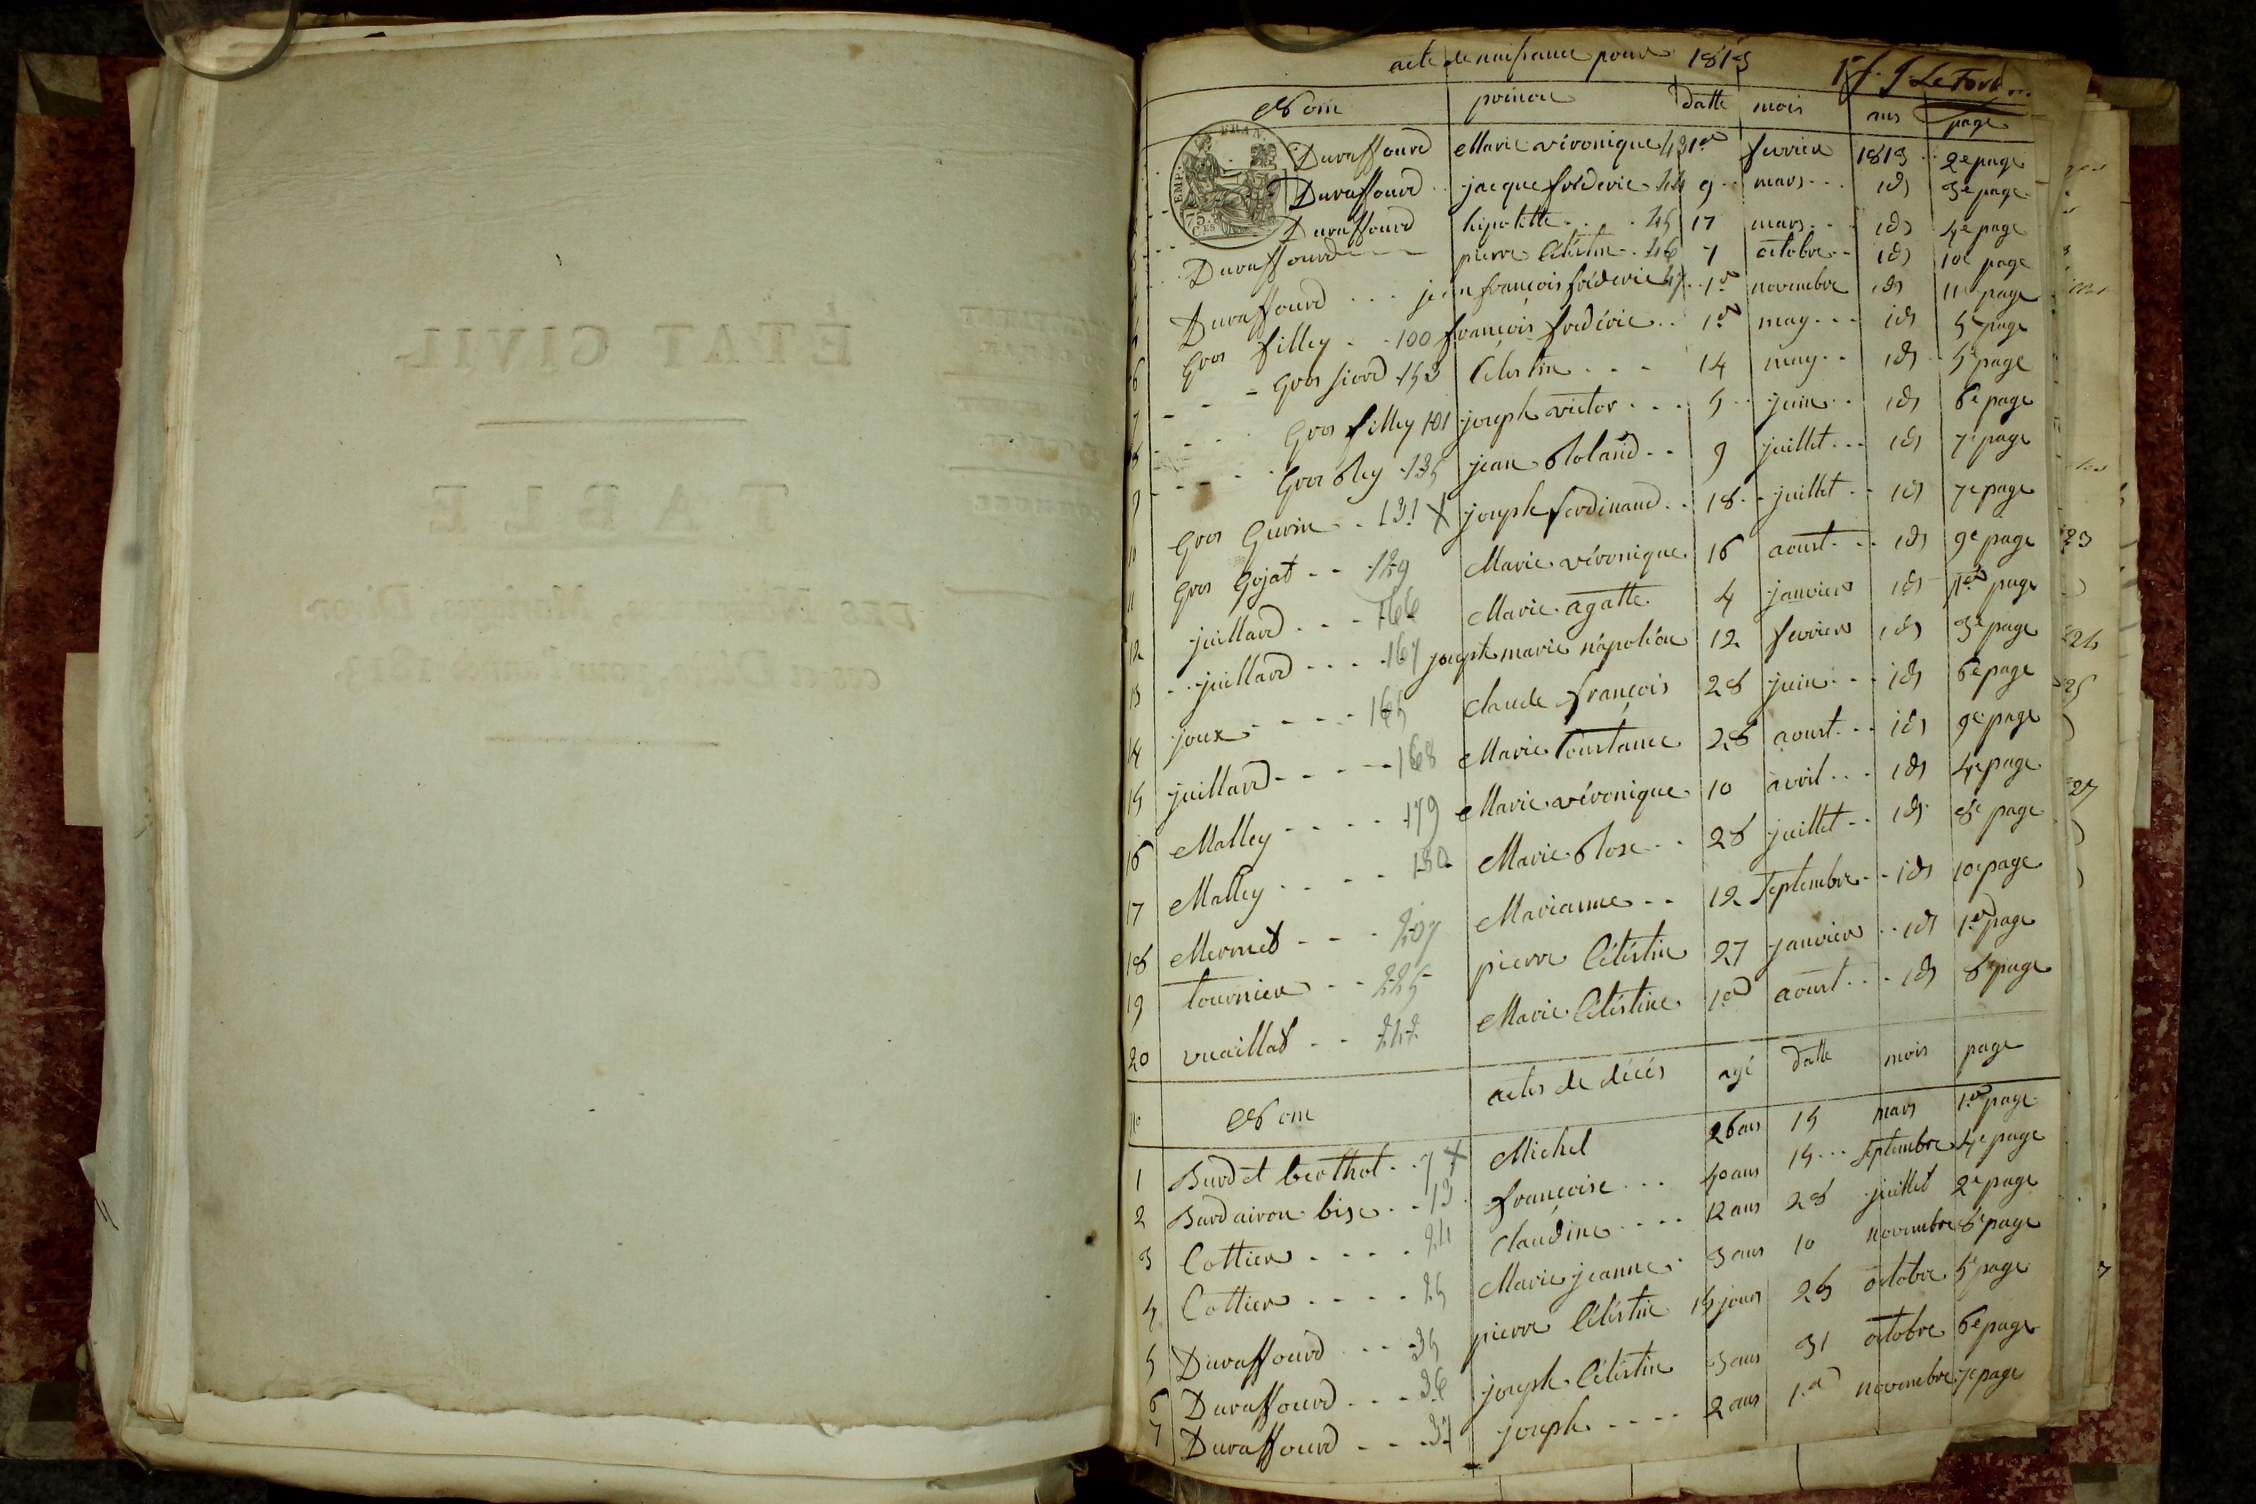 ÉTAT CIVIL
TABLE
DES Naissances, Mariages, Divor-
ces et Décès, pour l'année 1813.
acte de naissance pour 1813
Nom prénom datte mois ans page
EMP. FRAN.
75 CES
Duraffourd Marie véronique 43 1er fevrier 1813 2e page
Duraffourd jacque fréderic 44 9 mars id 3e page
3 Duraffourd hipolitte 45 17 mars id 4e page
4 Duraffourd pierre Céléstin 46 7 octobre id 10e page
5 Duraffourd jean françois fréderic 47 1er novembre id 11e page
6 Gros filley 100 françois fredéric 1er may id 5e page
7 Gros siord 153 Celestin 14 may id 5e page
8 Gros filley 101 joseph victor 5 juin id 6e page
9 Gros Rey 135 jean Roland 9 juillet id 7e page
Gros Gurin 131 X joseph ferdinand 18 juillet id 7e page
11 Gros Gojat 129 Marie véronique 16 aoust id 9e page
12 juillard 166 Marie agatte 4 janvier id 1ere page
13 juillard 167 joseph marie napoléon 12 fevrier id 3e page
14 joux 165 Claude françois 28 juin id 6e page
15 juillard 168 Marie Constance 28 aoust id 9e page
16 Malley 179 Marie véronique 10 avril id 4e page
17 Malley 180 Marie Rose 28 juillet id 8e page
18 Mermet 207 Marianne 12 septembre id 10e page
19 tournier 225 pierre Céléstin 27 janvier id 1er page
20 vuaillat 242 Marie Céléstine 1er aoust id 8e page
No Nom actes de décés agé datte mois page
1 Burdet berthot 7 X Michel 26 ans 15 mars 1er page
2 Burdairon bise 13 françoise 40 ans 15 septembre 4e page
3 Cottier 24 Claudine 12 ans 28 juillet 2e page
4 Cottier 25 Marie jeanne 3 ans 10 novembre 8e page
5 Duraffourd 35 pierre Céléstin 15 jours 25 octobre 5e page
6 Duraffourd 36 joseph Céléstin 3 ans 31 octobre 6e page
7 Duraffourd 37 joseph 2 ans 1er novembre 7e page